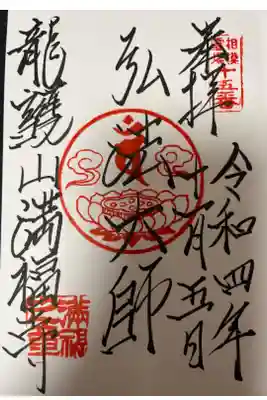 奉拝
令和四年
月五日
弘法大師
龍護山満福寺
十五番
満福